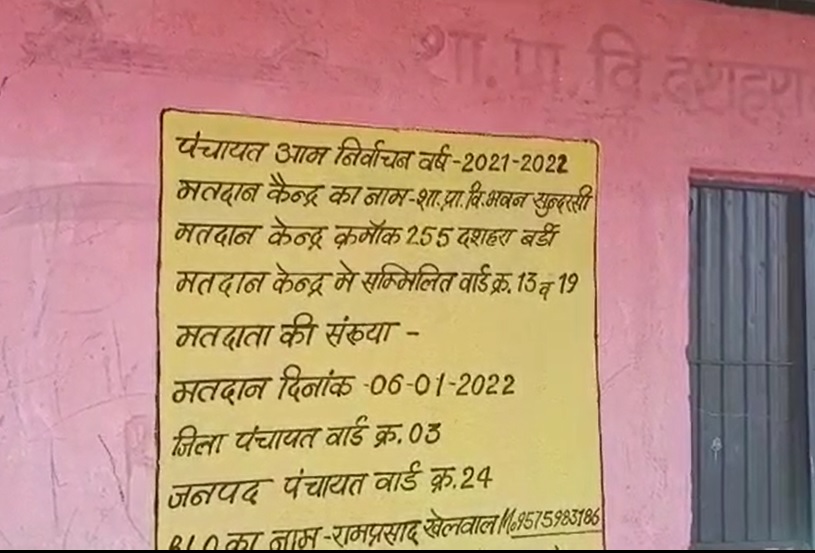 शा.प्रा.वि.दशहरा
पंचायत आम निर्वाचन वर्ष-2021-2022
मतदान कैन्द्र का नाम-शा.प्रा.वि.भवन सुन्दरसी
मतदान केन्द्र क्रमाँक 255 दशहरा बर्डी
मतदान केन्द्र मे सम्मिलित वार्ड क्र. 13 व 19
मतदाता की संख्या -
मतदान दिनांक -06-01-2022
जिला पंचायत वार्ड क्र.03
जनपद पंचायत वार्ड क्र.24
BLO का नाम-रामप्रसाद खेलवाल M.9575983186